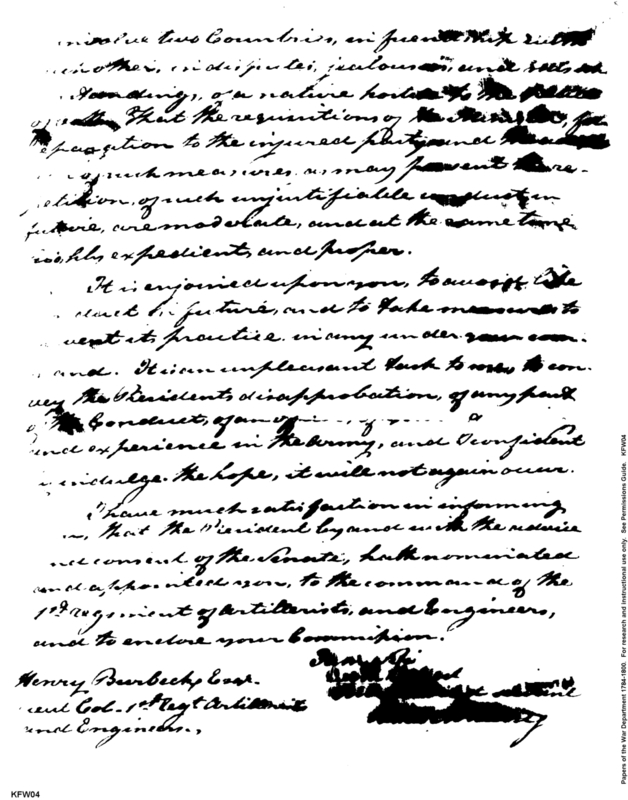 involve two Countries, in friendship with
another, in disputes, jealousies, and
standings, of a nature hostile to the
That the requisitions of the Minister, for
reparation to the injured party and the
of such measures, as may prevent the re-
petition, of such unjustifiable conduct in
future, are moderate, and at the same time
highly expedient, and proper.
It is enjoined upon you, to avoid like
conduct in future, and to take measures to
prevent its practice in any under your com-
mand. It is an unpleasant task to me, to con-
vey the Presidents disapprobation, of any part
of the Conduct, of an
and experience in the Army, and I confident
indulge the hope, it will not again occur.
I have much satisfaction in informing
that the President by and with the advice
and consent of the Senate, hath nominated
and appointed you, to the command of the
1st regiment of Artillerists, and Engineers,
and to enclose your Commission.
I am
Henry Burbeck Esqr.
Lieut Col. 1st Regt Artillerists
and Engineers.
Papers of the War Department 1784-1800. For research and instructional use only. See Permissions Guide. KFW04
KFW04